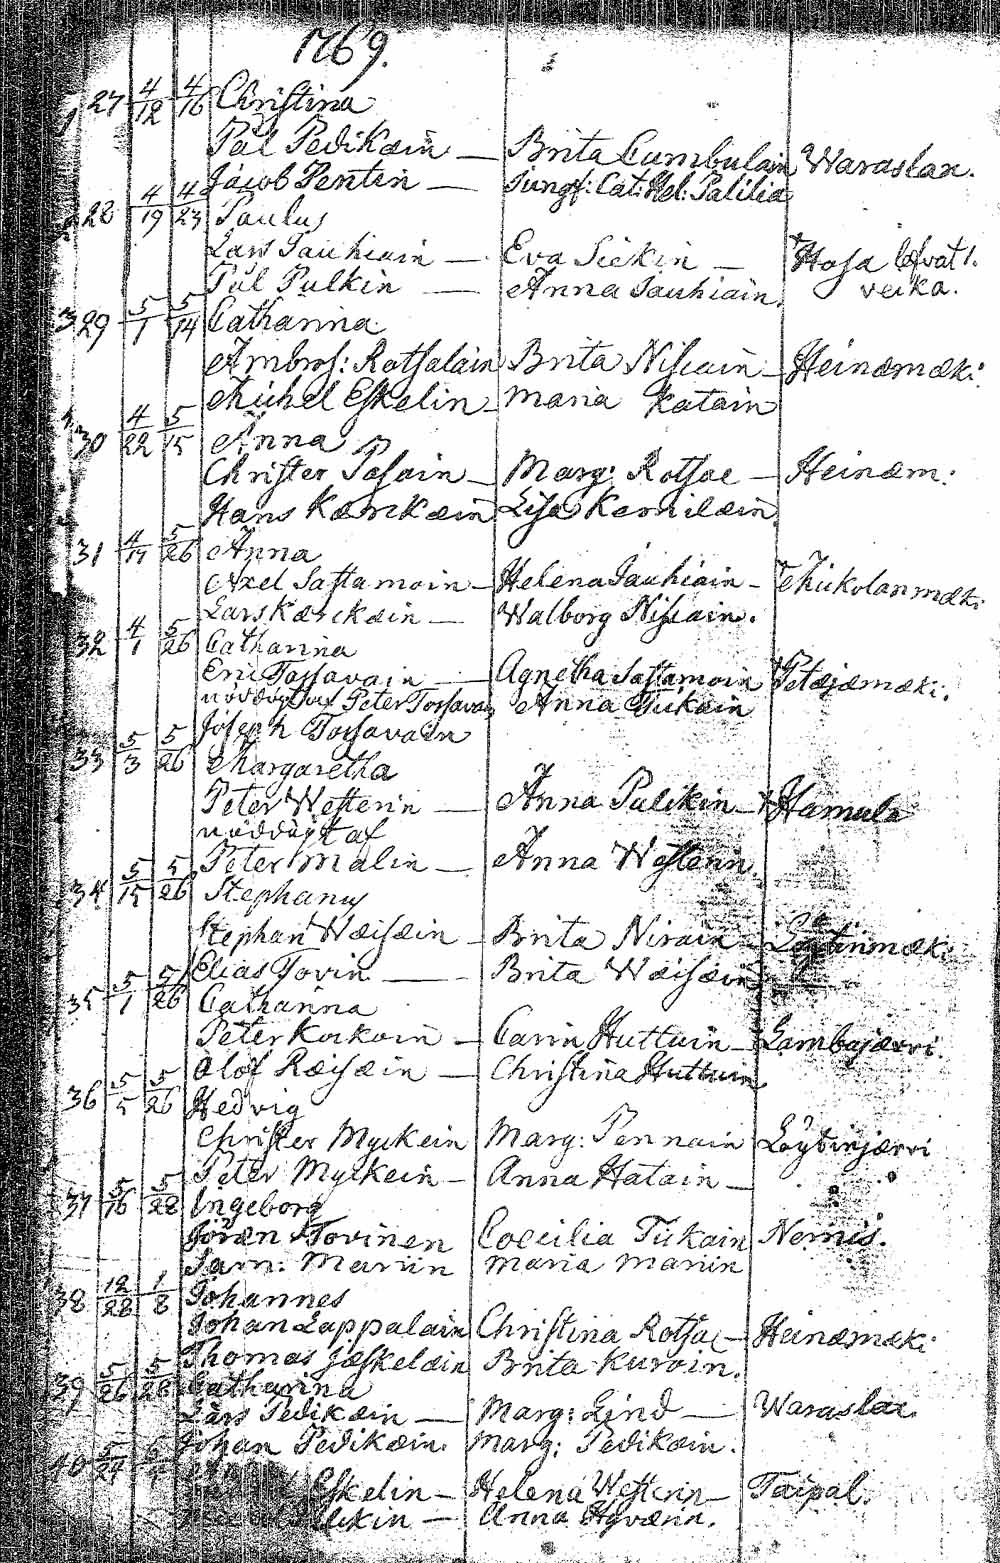 1769.
27 4/12 4/16 Christina
Pål Pedikæin — Brita Cumbulain Waraslax.
Jacob Pentin — Jungf: Cat: Hel: Palilia
28 4/19 4/23 Paulus
Lars Jauhiain — Eva Siekin —
Pål Pulkin — Anna Jauhiain. veika.
29 5/1 5/14 Catharina
Ambros: Rotsalain Brita Nissiain — Heinæmæki.
Michel Eskelin — Maria Katain
30 4/22 5/15 Anna
Christer Pasain — Marg: Rotsae — Heinæm:
Hans Kærckæin Lisa Kemilæin.
31 4/17 5/26 Anna
Axel Sastamoin — Helena Jauhiain — Miikolanmæki
Lars Kærckæin — Walborg Nissiain.
32 4/1 5/26 Catharina
Eric Tossavain — Agnetha Sastamoin Petæjæmæki.
nöddöpt af Peter Tossavain Anna Tiikain
Joseph Tossavain
33 5/3 5/26 Margaretha
Peter Westerin — Anna Pulikin — Hamula
nöddöpt af
Peter Malin — Anna Westerin.
34 5/15 5/26 Stephanus
Stephan Wæisæin — Brita Nirain — Löytinmæki
Elias Tovin — Brita Wæisæin
35 5/1 5/26 Catharina
Peter Korkoin — Carin Huttuin — Lambajærvi
Olof Ræisæin — Christina Huttuin
36 5/5 5/26 Hedvig
Christer Myckein Marg: Pennain Löytinjærvi
Peter Mylkein — Anna Hatain —
37 5/16 5/28 Ingeborg
Jöran Tovinen Coecilia Tiikain Nemis.
Sam: Marin Maria Manin
38 12/28 1/8 Johannes
Johan Lappalain Christina Rotsae — Heinæmæki
Thomas Jæskelæin Brita Kuroin.
39 5/26 5/28 Catharina
Lars Pedikæin — Marg: Lind — Waraslax
Johan Pedikæin. Marg: Pedikæin.
40 5/27
Eskelin — Helena Westerin — Taipal.
Anna Hyvænn.